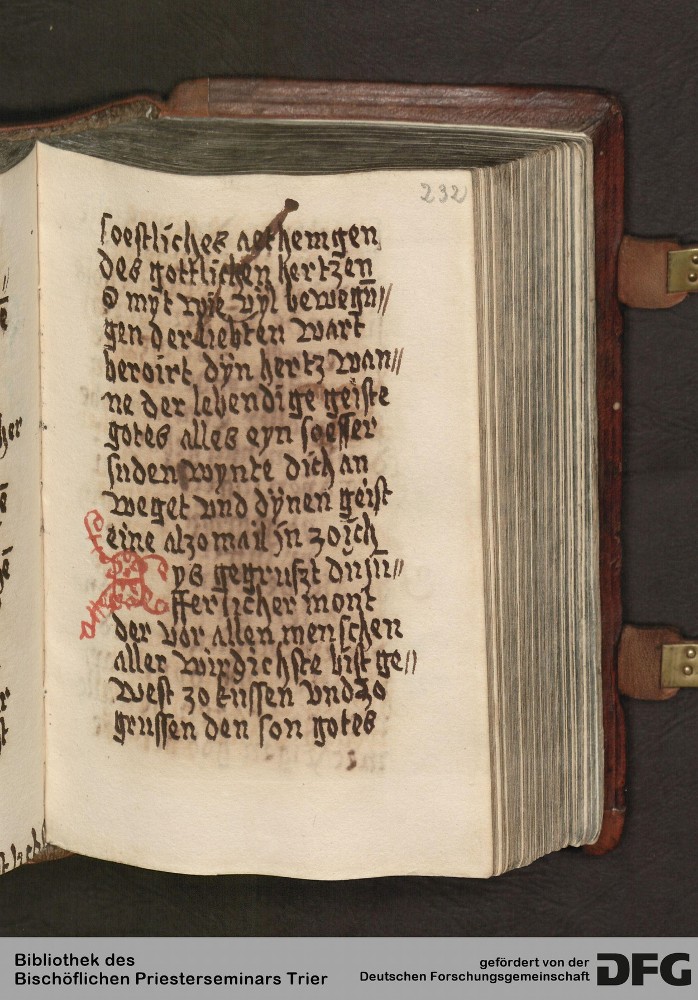 232
soestliches aethemgen
des gottlichen hertzen
O myt wie vyl bewegū//
gen der liebten wart
beroirt dÿn hertz wan//
ne der lebendige geiste
gotes alles eyn soesser
suden wynte dich an
weget vnd dÿnen geist
eine alzomail jn zoich
Xys gegruszt du sū//
fferlicher mont
der vor allen menschen
aller wirdichste bist ge//
west zo kussen vnd zo
grussen den son gotes
Bibliothek des
Bischöflichen Priesterseminars Trier
gefördert von der
Deutschen Forschungsgemeinschaft
DFG